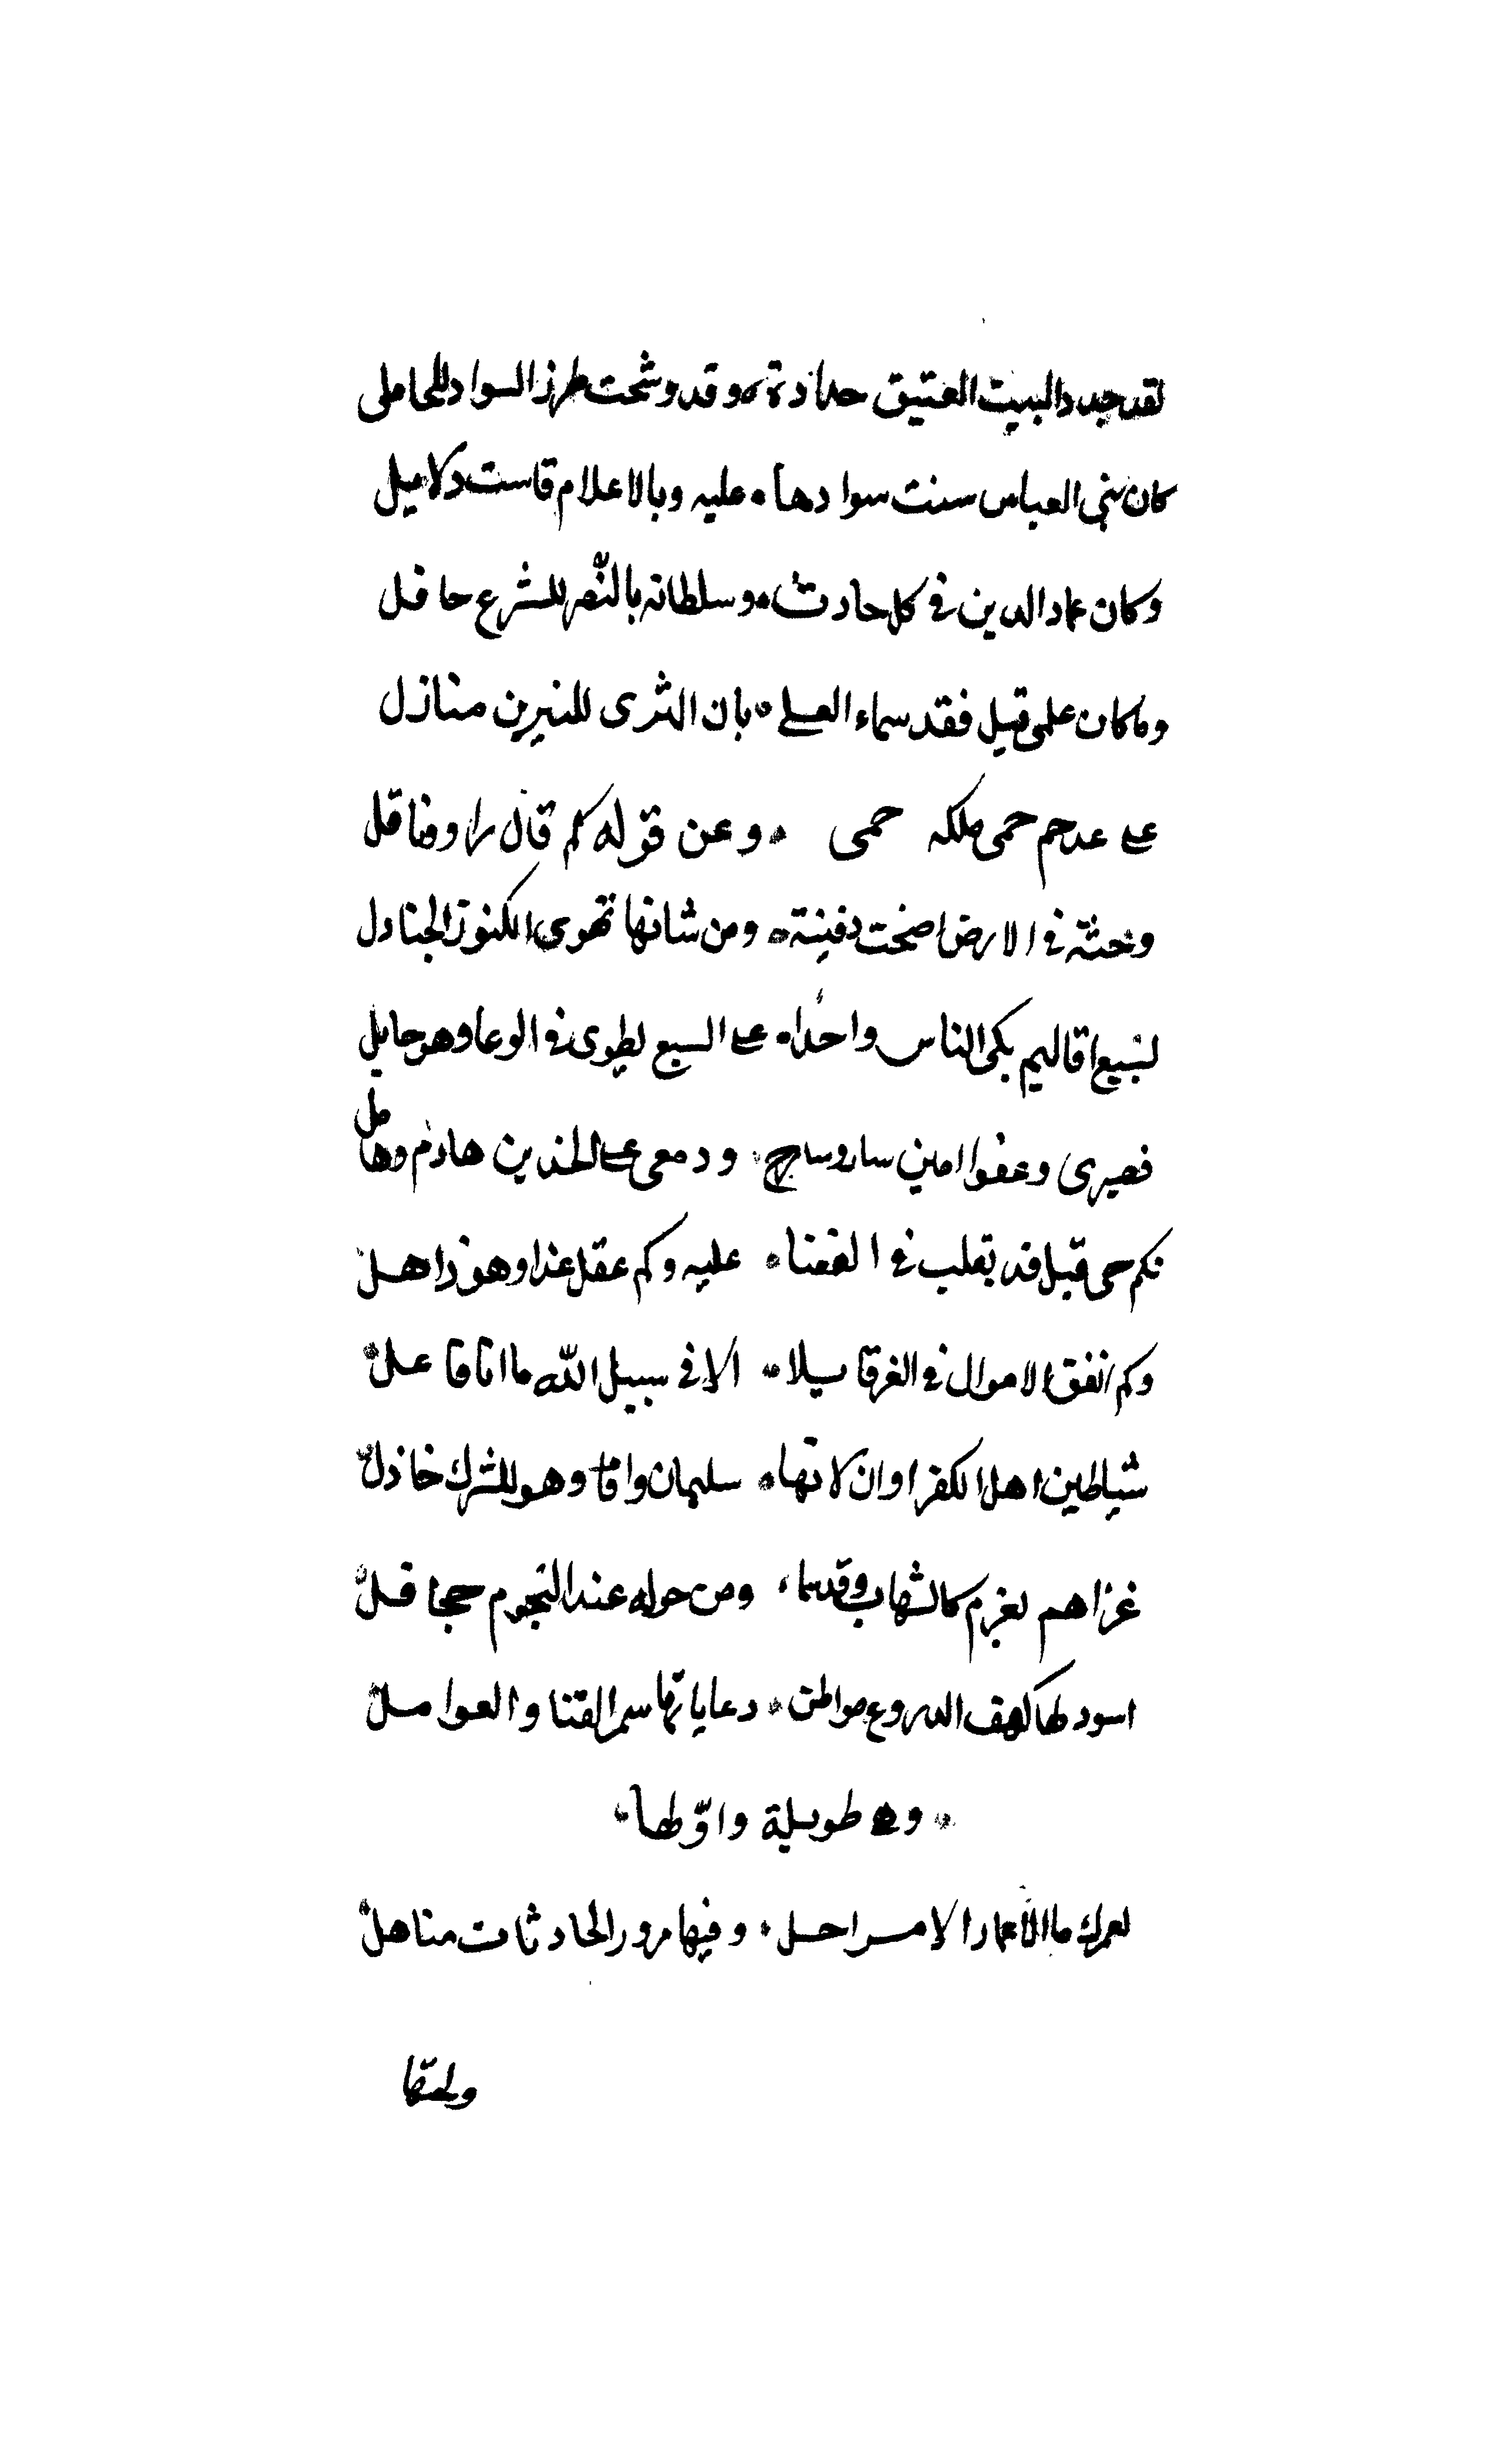 لقد جدد البيت العتيق حدادة وقد وشحت طرز السواد للمحامل
كان بني العباس سنت سوادها عليه وبالاعلام قامت دلايل
وكان عماد الدين في كل حادث وسلطانه بالنّصر للشرع حافل
وما كان علمي قبل فقد سماء العلى بان الثرى للنيرين منازل
على عدم حمى ملكه حمى وعن قوله كم قال راو وناقل
وجثته في الارض اضحت دفينة ومن شانها تهوى الكنوز الجنادل
لسبع اقاليم بكى الناس واحدا على السبع يطوى في الوغا وهو جايل
فصبرى وعفوا امين سار وسابح ودمعى على الخدين هادم وهامل
فكم حى قبل قد تقلب في الغضنا عليه وكم عقل غذا وهو ذاهل
وكم انفق الاموال في الغرقا يلا الا في سبيل الله ما انا فاعل
شياطين اهل الكفر اوان لانها سليمان وافا وهو للشرك خاذل
غزاهم بعزم كالشهاب وقدما ومن حوله عند النجوم جحافل
اسود لها كهف الدروع مواطن دعاياتها سمر القنا والعوامل
وهي طويلة واوّلها
لعمرك ما الاعمار الا مراحل وفيها مرور الحادثات مناهل